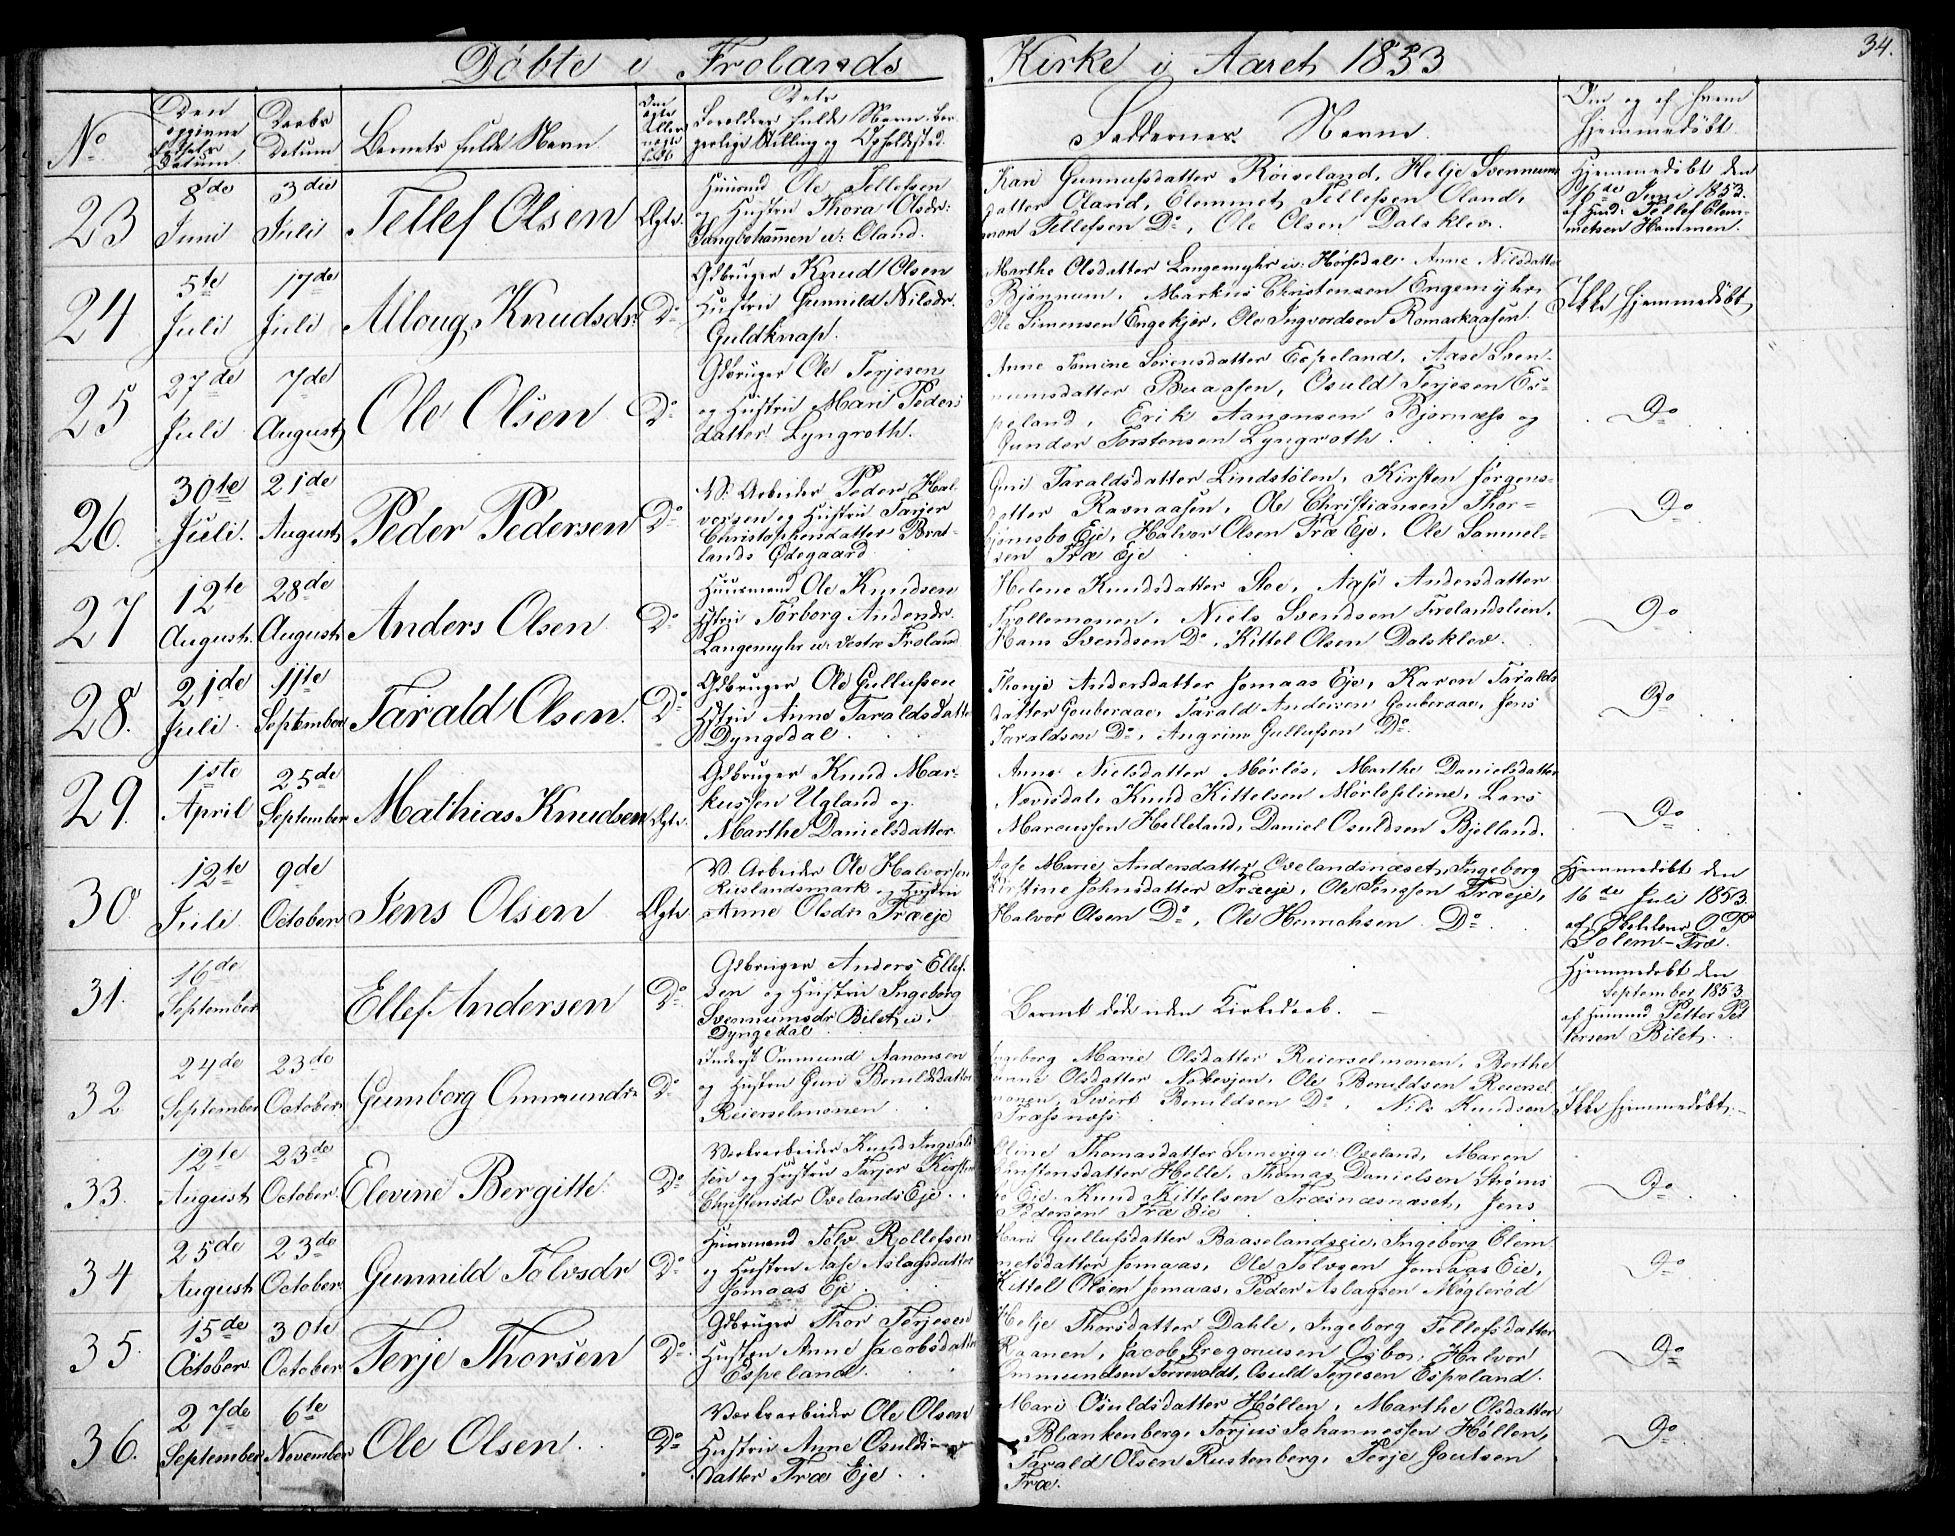 Döbte i Frolands Kirke i Aaret 1853
34.
No
Den opgivne Fødsels Datum.
Daabs Datum
Barnets fulde Navn
Om ægte Eller uægte født
Dets Forældres fulde Navn, borgerlige Stilling og Opholdssted.
Faddernes Navn.
Om og af hvem hjemmedöbt.
23
8de Juni
3die Juli
Tellef Olsen
Ægte.
Huusmd Ole Tellefsen
og Hustru Thora Olsdr:
Tangbohammen u: Oland.
Kari Gunnufsdatter Röiseland, Helje Svennums
datter Oland, Clemmet Tellefsen Oland,
Tellefsen Do, Ole Olsen Dalsklev.
Hjemmedöbt den
16de Juni 1853.
af Husd: Tellef Clem-
metsen Hammen.
24
5te Juli
17de Juli
Alloug Knudsdr:
Do
Gdbruger Knud Olsen
Hustru Gunnild Nilsdr.
Guldknap.
Marthe Olsdatter Langemyhr u: Hörsdal. Anne Nilsdatter
Bjönnum, Markus Christensen Engemyhr,
Ole Simonsen Engekjær, Ole Ingvordsen Romarkaasen.
Ikke hjemmedöbt
25
27de Juli
7de August
Ole Olsen
Do
Gdbruger Ole Terjesen
og Hustru Mari Peders
datter Lyngroth.
Anne Tomine Sörensdatter Espeland, Aase Sven-
numsdatter Buaasen, Osuld Terjesen Es-
peland, Erik Aanonsen Bjornæss og
Gunder Torstensen Lyngroth.
Do
26.
30te Juli.
21de August
Peder Pedersen
Do
V. Arbeider Peder Hal-
vorsen og Hustru Tarjer
Christophersdatter Brat-
lands Ødegaard
Guri Taraldsdatter Lindstölen, Kirsten Jörgens-
datter Ravnaasen, Ole Christiansen Thor-
björnsbo Eje, Halvor Olsen Træ Eje, Ole Samuel-
sen Træ Eje
Do
27
12te August.
28de August
Anders Olsen
Do
Huusmand Ole Knudsen
Hstru Torborg Andersdr.
Langemyhr u: Vestre Froland
Helene Knudsdatter Stoe, Aase Andersdatter
Trollemonen, Niels Svendsen Frolandslien,
Hans Svendsen Do, Kittel Olsen Dalsklev.
Do
28.
21de Juli
11te September
Tarald Olsen.
Do
Gdbruger Ole Gullufsen
Hstru Anne Taraldsdatter
Dyngedal.
Thonje Andersdatter Jomaas Eje, Karen Taralds
datter Gauberaae, Tarald Andersen Gauberaae, Jens
Taraldsen Do, Angrim Gullufsen Do.
Do
29.
1ste April
25de September
Mathias Knudsen
Ægte.
Gdbruger Knud Mar-
kussen Ugland og
Marthe Danielsdatter
Anne Nielsdatter Mörlös, Marthe Danielsdatter
Nævisdal, Knud Kittelsen Mörlöseliene, Lars
Marcussen Helleland, Daniel Osuldsen Bjelland.
Do
30
12te Juli
9de October
Jens Olsen
Ægte
V. Arbeider Ole Halvorsen
Rislandsmark og Hustru
Anne Olsdr. Træeje
Aase Marie Andersdatter Ovelandsnæset, Ingeborg
Kirstine Johnsdatter Træeje, Ole Jensen Træeje,
Halvor Olsen Do, Ole Hinrichsen Do.
Hjemmedöbt den
16de Juli 1853.
af Skolelærer O. P
Solem - Træ.
31.
16de September
Ellef Andersen
Do
Gdbruger Anders Ellef-
sen og Hustru Ingeborg
Svennumsdr. Bilet u.
Dyngedal
Barnet döde uden Kirkedaab.
Hjemmedöbt den
September 1853.
af Huusmd Petter Pet
tersen Bilet.
32
24de September
23de October
Gunborg Ommundsr.
Do
Inderst Ommund Aanonsen
og Hustru Guri Benuldsdatter
Reierselmonen
Ingeborg Marie Olsdatter Reierselmonen, Berthe
Olsdatter Nokevjen, Ole Benuldsen Reiersel
monen, Sivert Benuldsen Do, Nils Knudsen
Træsnæs.
Ikke hjemmedöbt.
33.
12te August
23de October.
Elevine Bergitte
Do
Værksarbeider Knud Ingvald
sen og Hustru Tarjer Kirstine
Christensdr Ovelands Eje
Eline Thomasdatter Simevig u: Oveland, Maren
Christensdatter Helle, Thomas Danielsen Ströms
bo Eje, Knud Kittelsen Træsnæsnæset, Jens
Pedersen Træ Eie
Do
34
25de August
23de October.
Gunnild Tolvsdr
Do
Huusmand Tolv Rollefsen
og Hustru Aase Aslagsdatter
Jomaas Eje
Mari Gullufsdatter Baaselandseie, Ingeborg Clem
metsdatter Jomaas, Ole Tolvsen Jomaas Eie,
Kittel Olsen Jomaas, Peder Aslagsen Möglerød
Do
35.
15de October
30te October
Terje Thorsen
Do
Gdbruger Thor Terjesen
Hustru Anne Jacobsdatter
Espeland.
Helje Thorsdatter Dahle, Ingeborg Tellefsdatter
Raanen, Jacob Gregoriusen Osbo, Halvor
Ommundsen Torrevoldt, Osuld Terjesen Espeland.
Do
36.
27de September
6te November
Ole Olsen.
Do
Værksarbeider Ole Olsen
Hustru Anne Osulds-
datter Træ Eje
Mari Osuldsdatter Höllen, Marthe Olsdatter
Blankenberg, Torjus Johannessen Höllen,
Tarald Olsen Rustenberg, Terje Goutsen
Træ.
Do